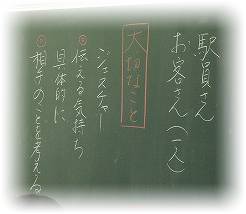 駅員さん
お客さん(一人)
大切なこと
ジェスチャー
伝える気持ち
具体的に
相手のことを考える